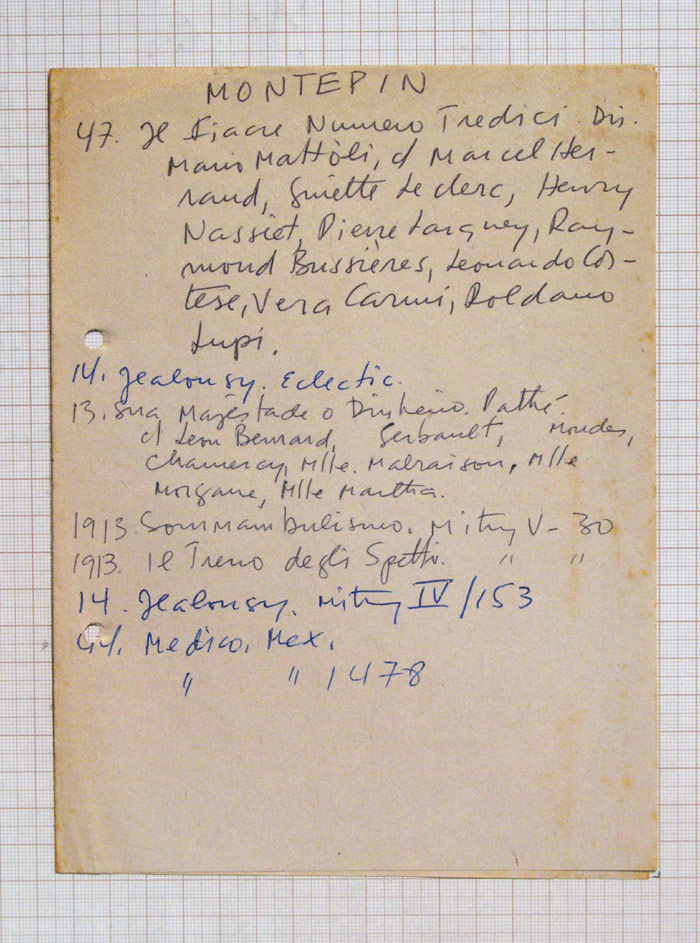 MONTEPIN
47. Il Fiacre Numero Tredici. Dir.
Mario Mattòli, c/ Marcel Her-
rand, Ginette Leclerc, Henry
Nassiet, Pierre Larquey, Ray-
mond Bussières, Leonardo Cor-
tese, Vera Carmi, Roldano
Lupi.
14. Jealousy. Eclectic.
13. Sua Majestade o Dinheiro. Pathé.
c/ Leon Bernard, Gerbault, Mondes,
Chameroy, Mlle. Malraison, Mlle
Morgane, Mlle Martha.
1913. Sommambulismo. Mitry V-30
1913. Il Treno degli Spettri. " "
14. Jealousy. Mitry IV/153
44. Medico. Mex.
" " 1478